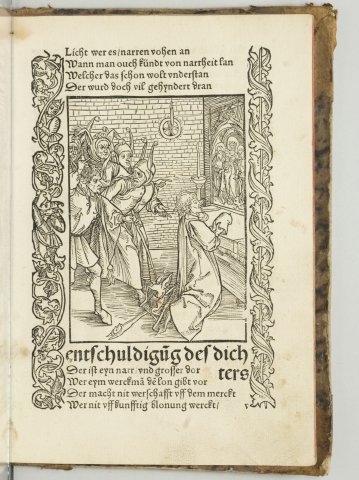 Licht wer es / narren vohen an
Wann man ouch kündt von narrheit lan
Welcher das schon wolt vnderstan
Der wurd doch vil gehyndert dran
entschuldigūg des dich
ters
Der ist eyn narr vnd grosser dor
Wer eym werckmā dē lon gibt vor
Der macht nit werschafft vff dem merckt
Wer nit vff kunfftig blonung werckt /